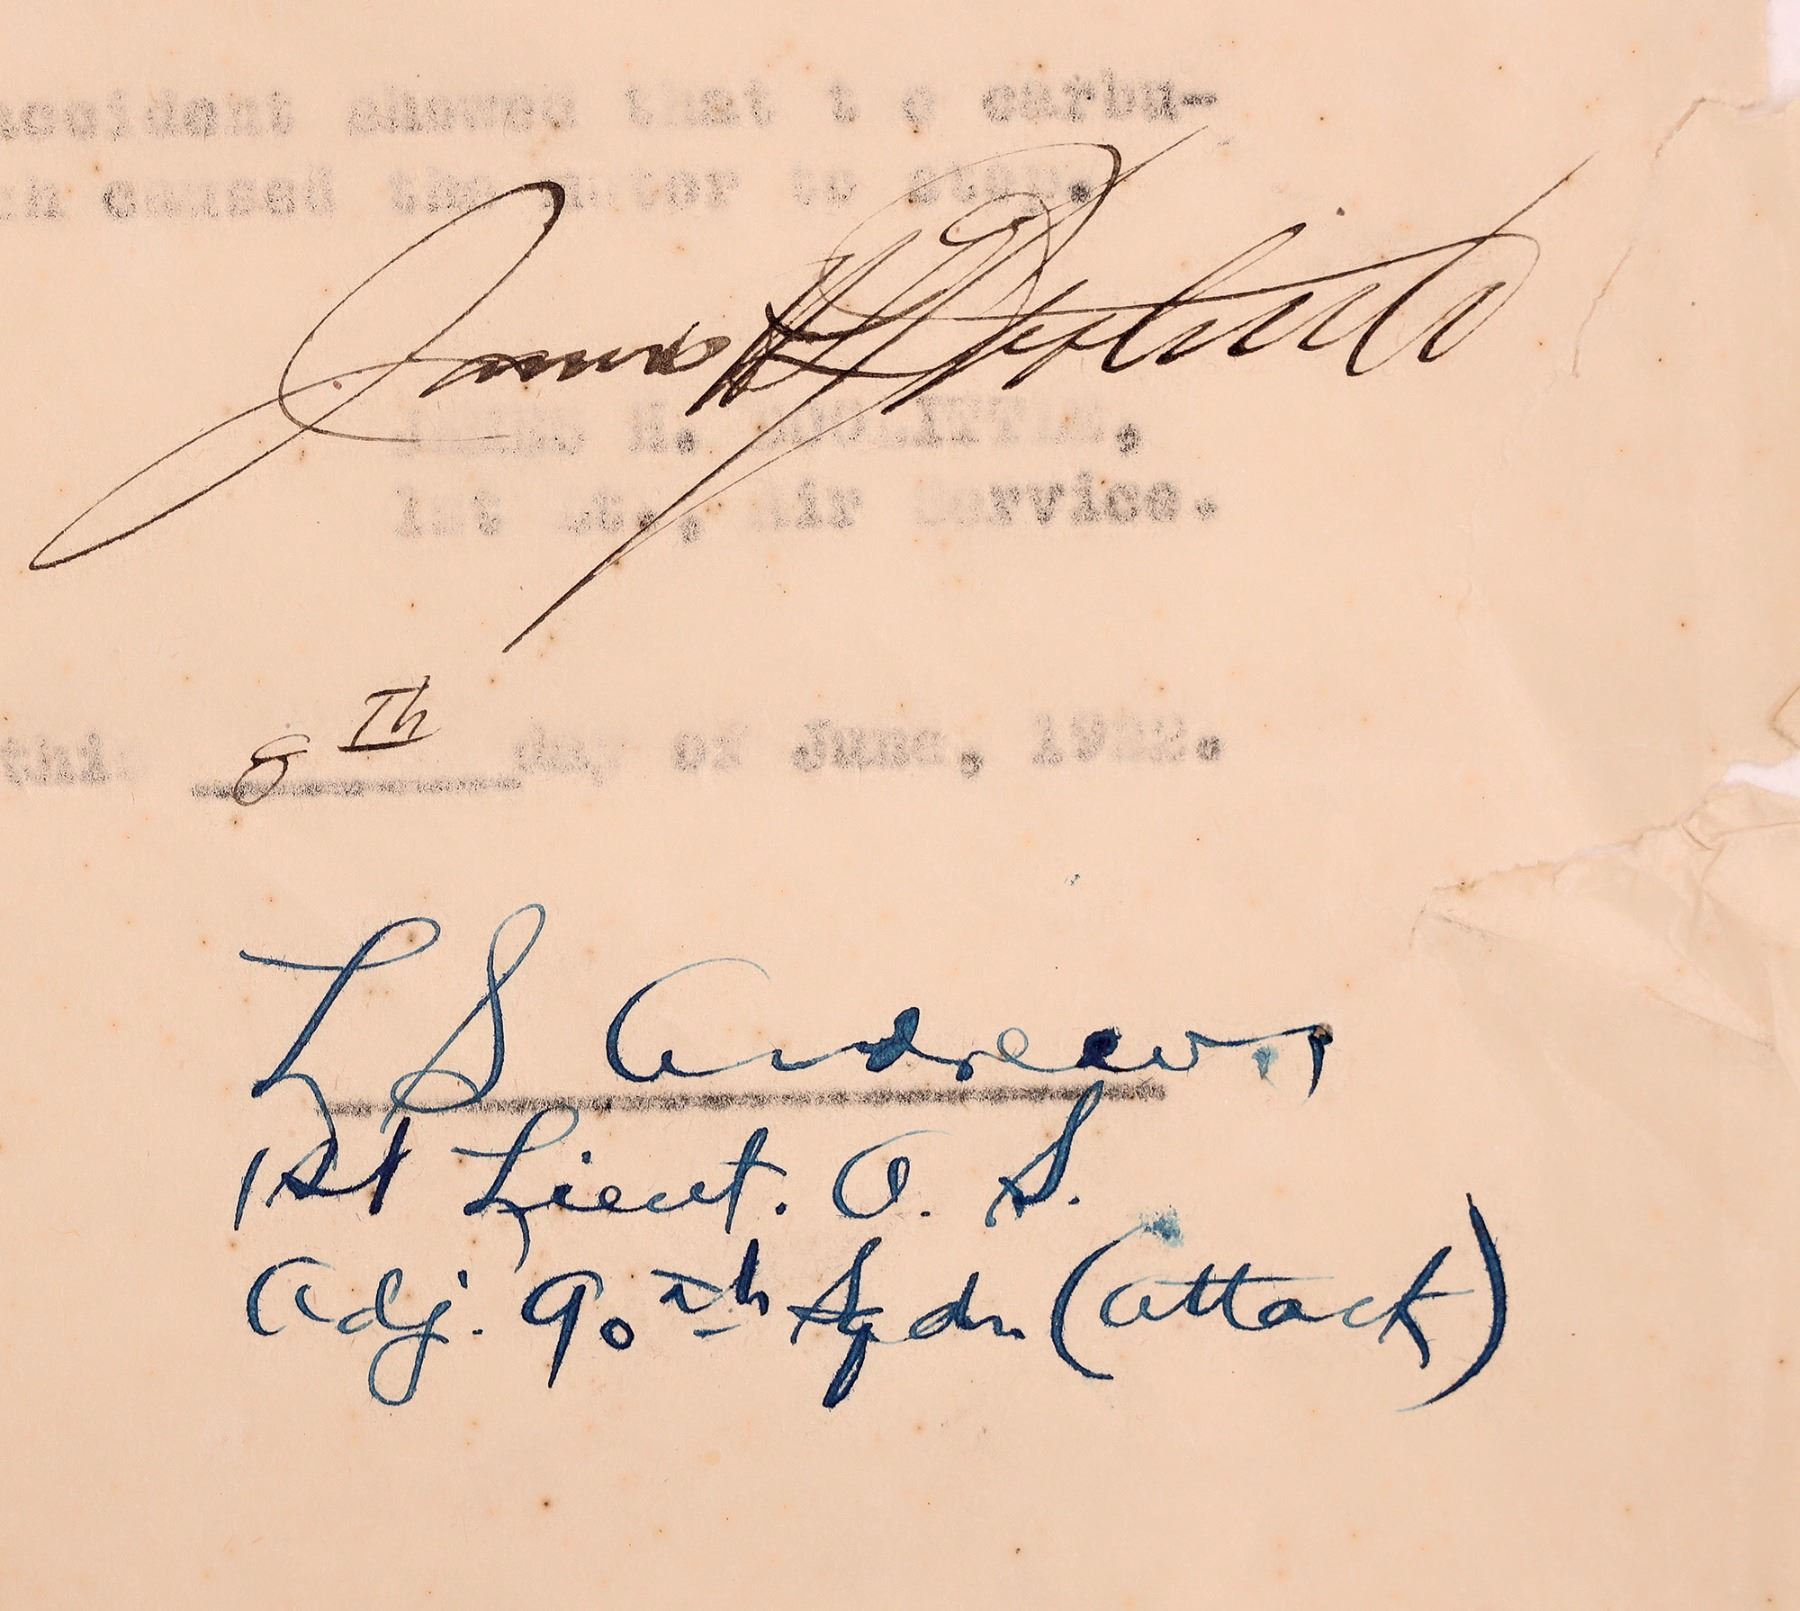 accident showed that t e carbu-
ch caused the motor to stop.
James H Doolittle
JAMES H. DOOLITTLE,
1st Lt., Air Service.
this 8th day of June, 1922.
L S Andrews
1st Lieut. A. S.
Adj. 90th Sqdn (attack)